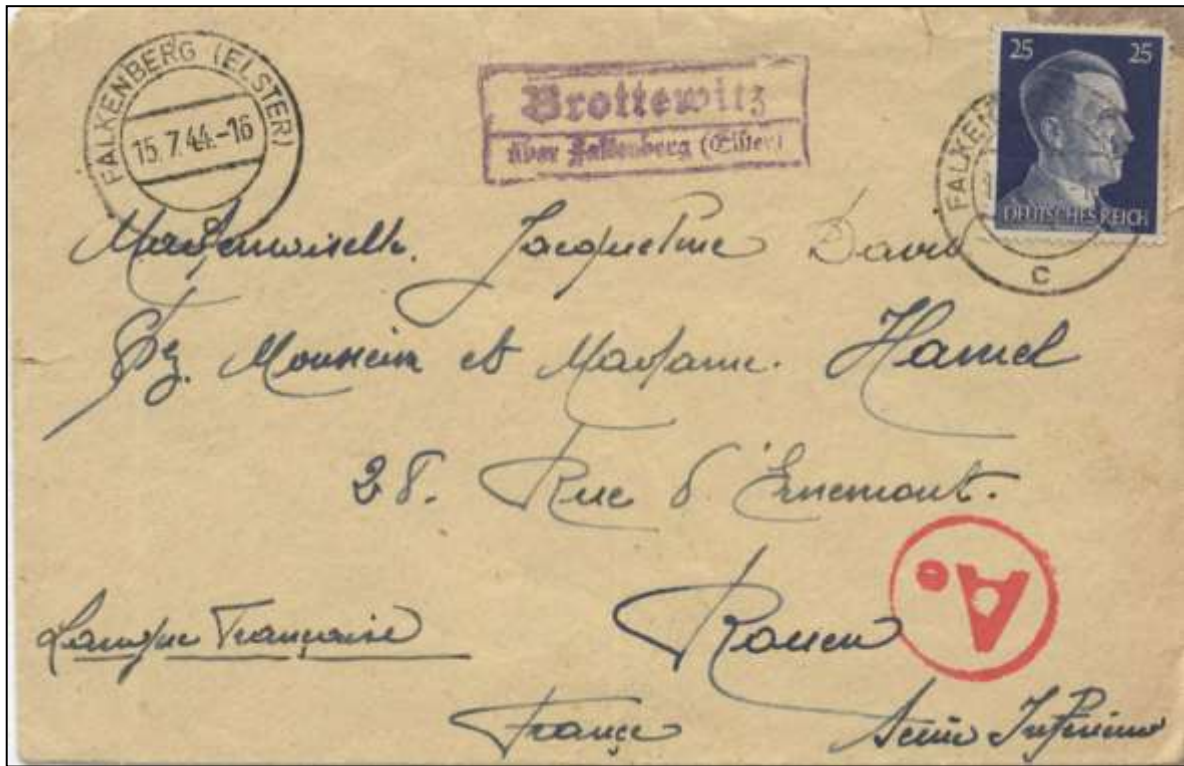 FALKENBERG (ELSTER)
15.7.44.-16
c
Brottewitz
über Falkenberg (Elster)
25 25
DEUTSCHES REICH
FALKEN
c
Mademoiselle. Jacqueline David
Chz. Monsieur et Madame. Hamel
28. Rue d'Ernemont.
Ae
Langue Française
Rouen
France
Seine Inférieure